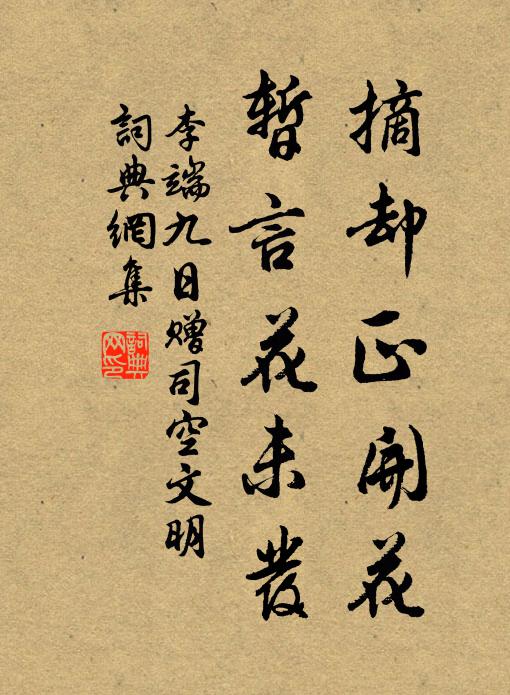 摘却正開花
暫言花未發
李端九日贈司空文明
詞典網集
詞典網印